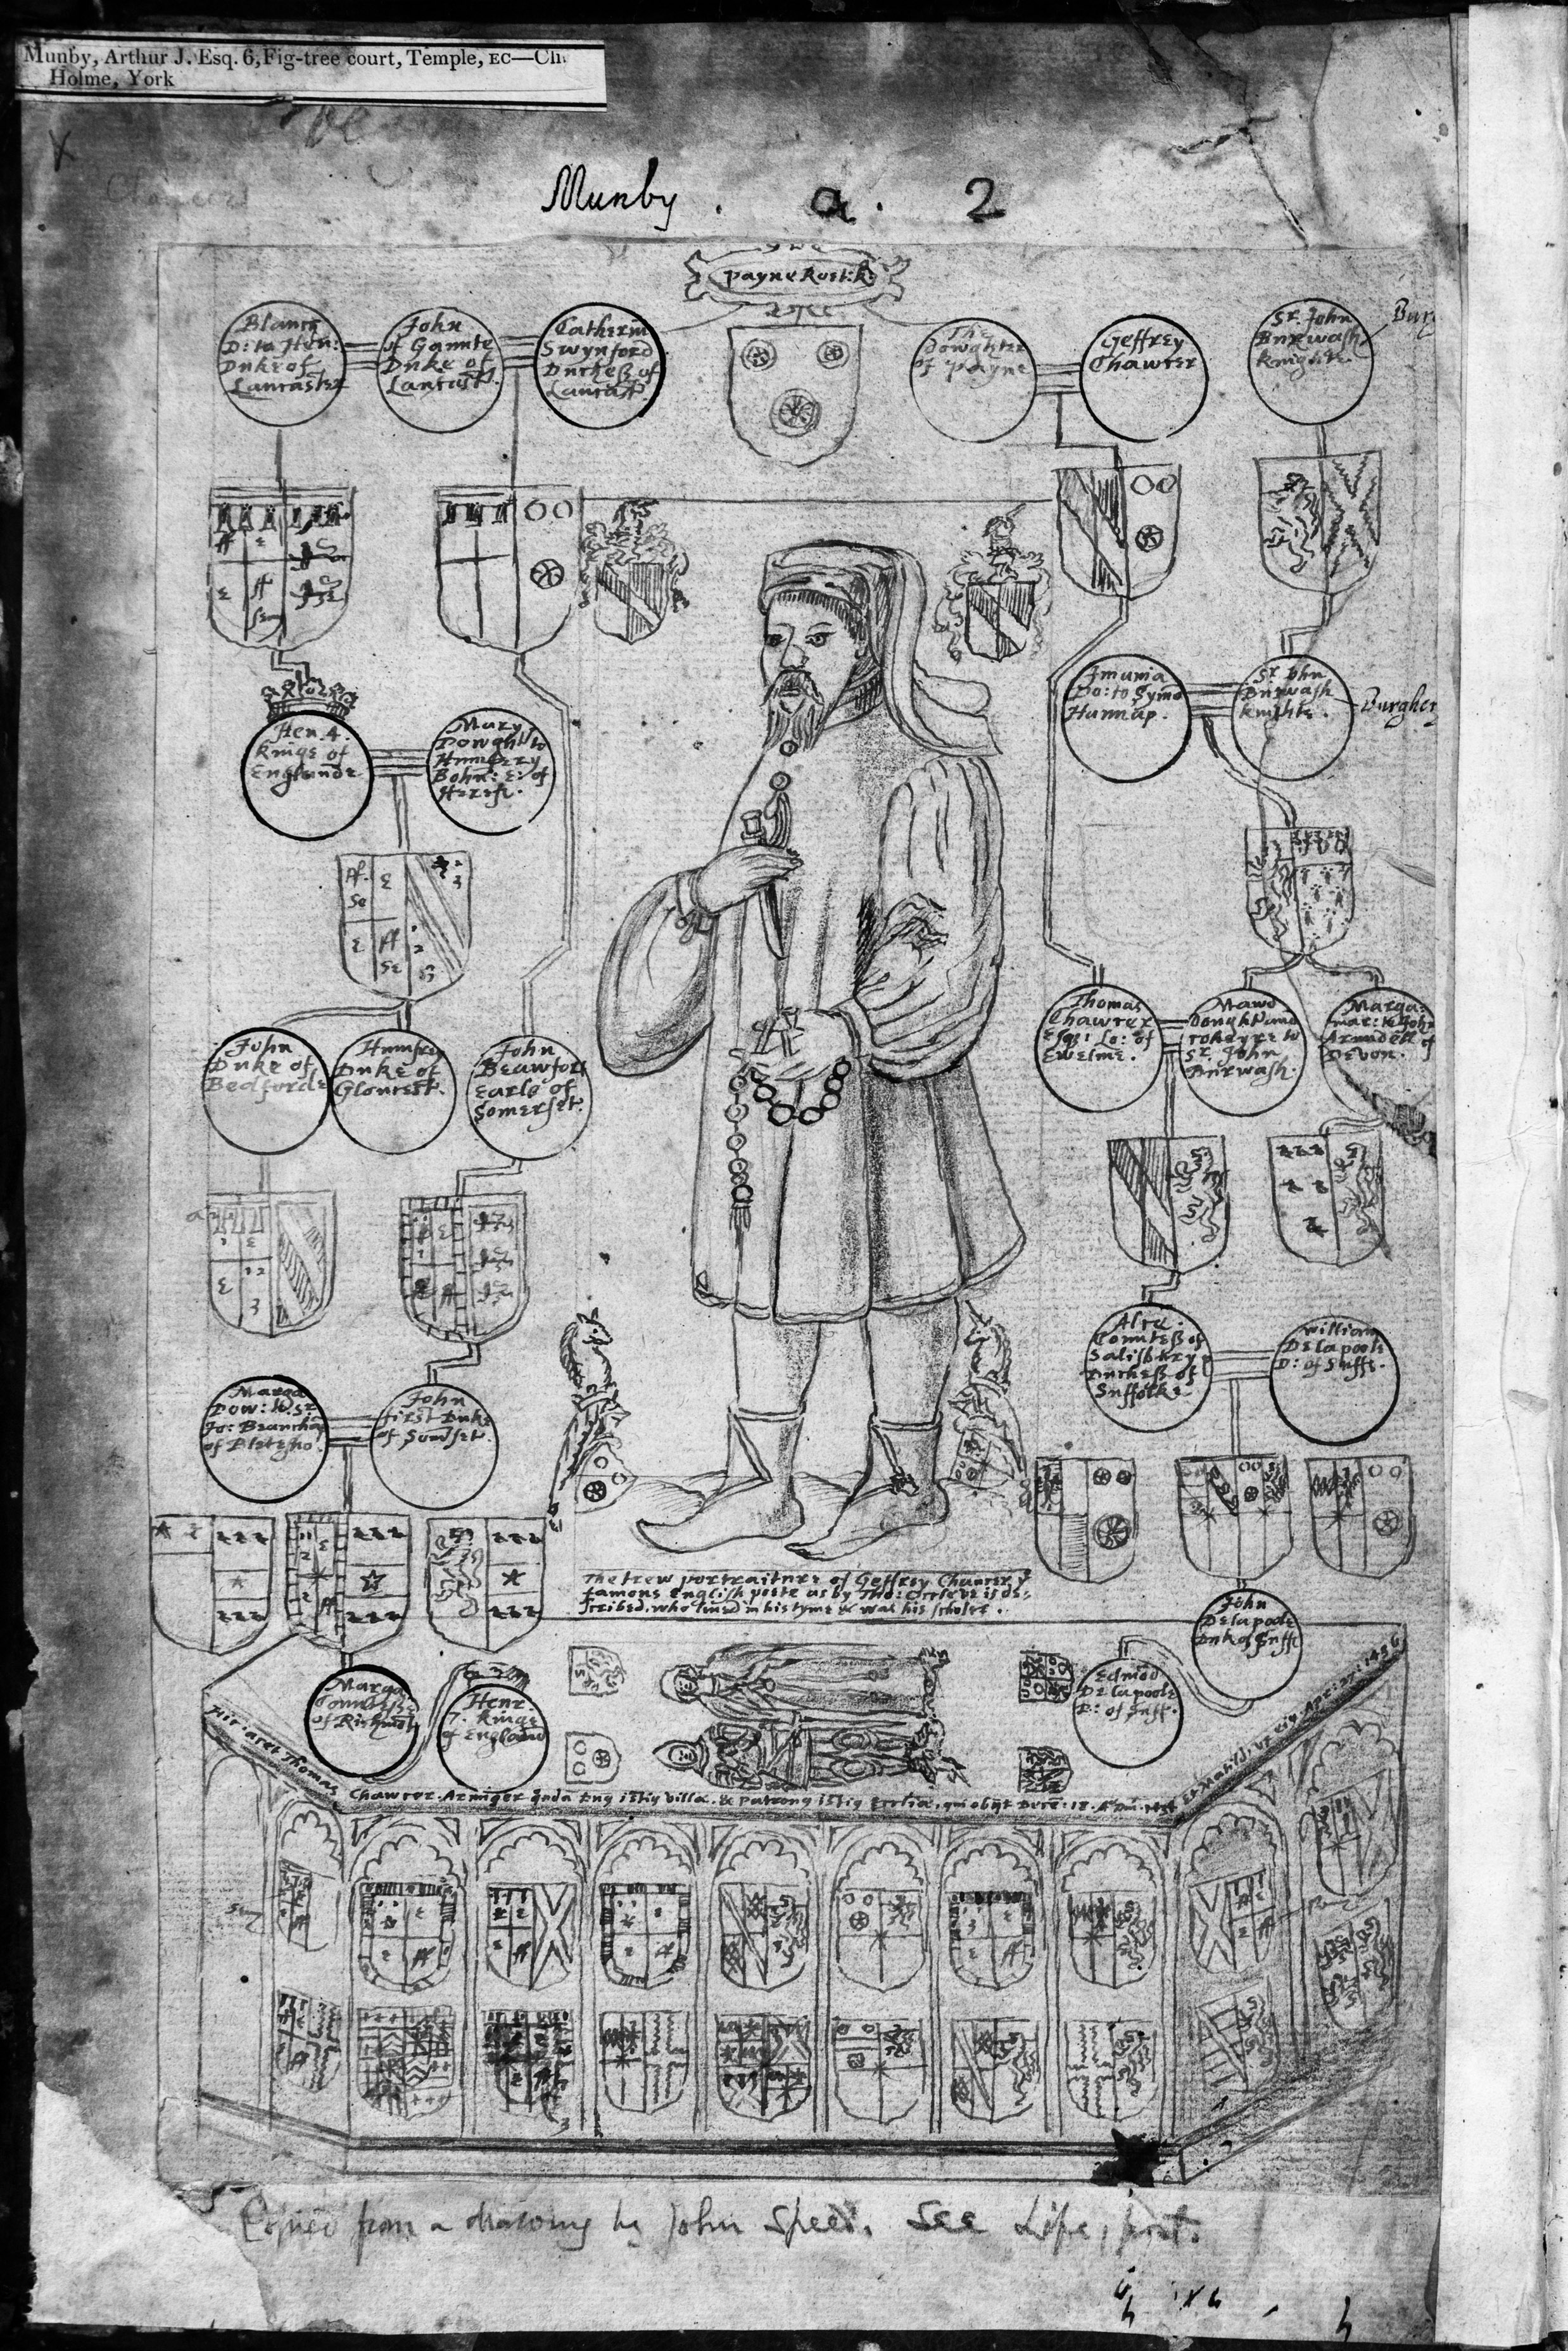 Munby, Arthur J. Esq. 6, Fig-tree court, Temple, EC—Cli
Holme, York
Munby . a . 2
payne Roet: k:
Blanch
D: to Hen:
Duke of
Lancaster
John
of Gaunte
Duke of
Lancast
Catherin
Swynford
Duches of
Lancast
The
dowghter
of payne
Geffrey
Chawcer
Sr. John
Burwash
knighte.
Hen. 4.
kinge of
Englande
Mary
Dowght to
Humfrey
Bohn: E: of
Imuma
Do: to Symo
Sr. John
Burwash
knighte.
John
Duke of
Bedforde
Humfrey
Duke of
Glocest.
John
Beawfort
Earle of
Somerset.
Thomas
Chawcer
Esqr: Lo: of
Ewelme.
Mawd
Sr. John
Burwash.
Marga:
mar: to John
Arundell of
Devon.
Marga
Dow: to Sr.
Jo: Beauchap
of Bletsho.
John
first Duke
of Somset.
Alce.
Countess of
Salisbury
Duches of
Suffolke
william
Delapoole
D: of Suff.
The trew portraiture of Geffrey Chaucer ye
famous English poete as by Tho: Occleve is de-
scribed, who lived in his tyme & was his scholer.
John
Delapoole
Duk of Suff
Marga
Countesse
of Richmod
Henr.
7. kinge
of England
Edmod
Delapoole
D: of Suff.
Hic iacet Thomas
Chawcer. Armiger
Copied from a drawing by John Speed. See Life, post.